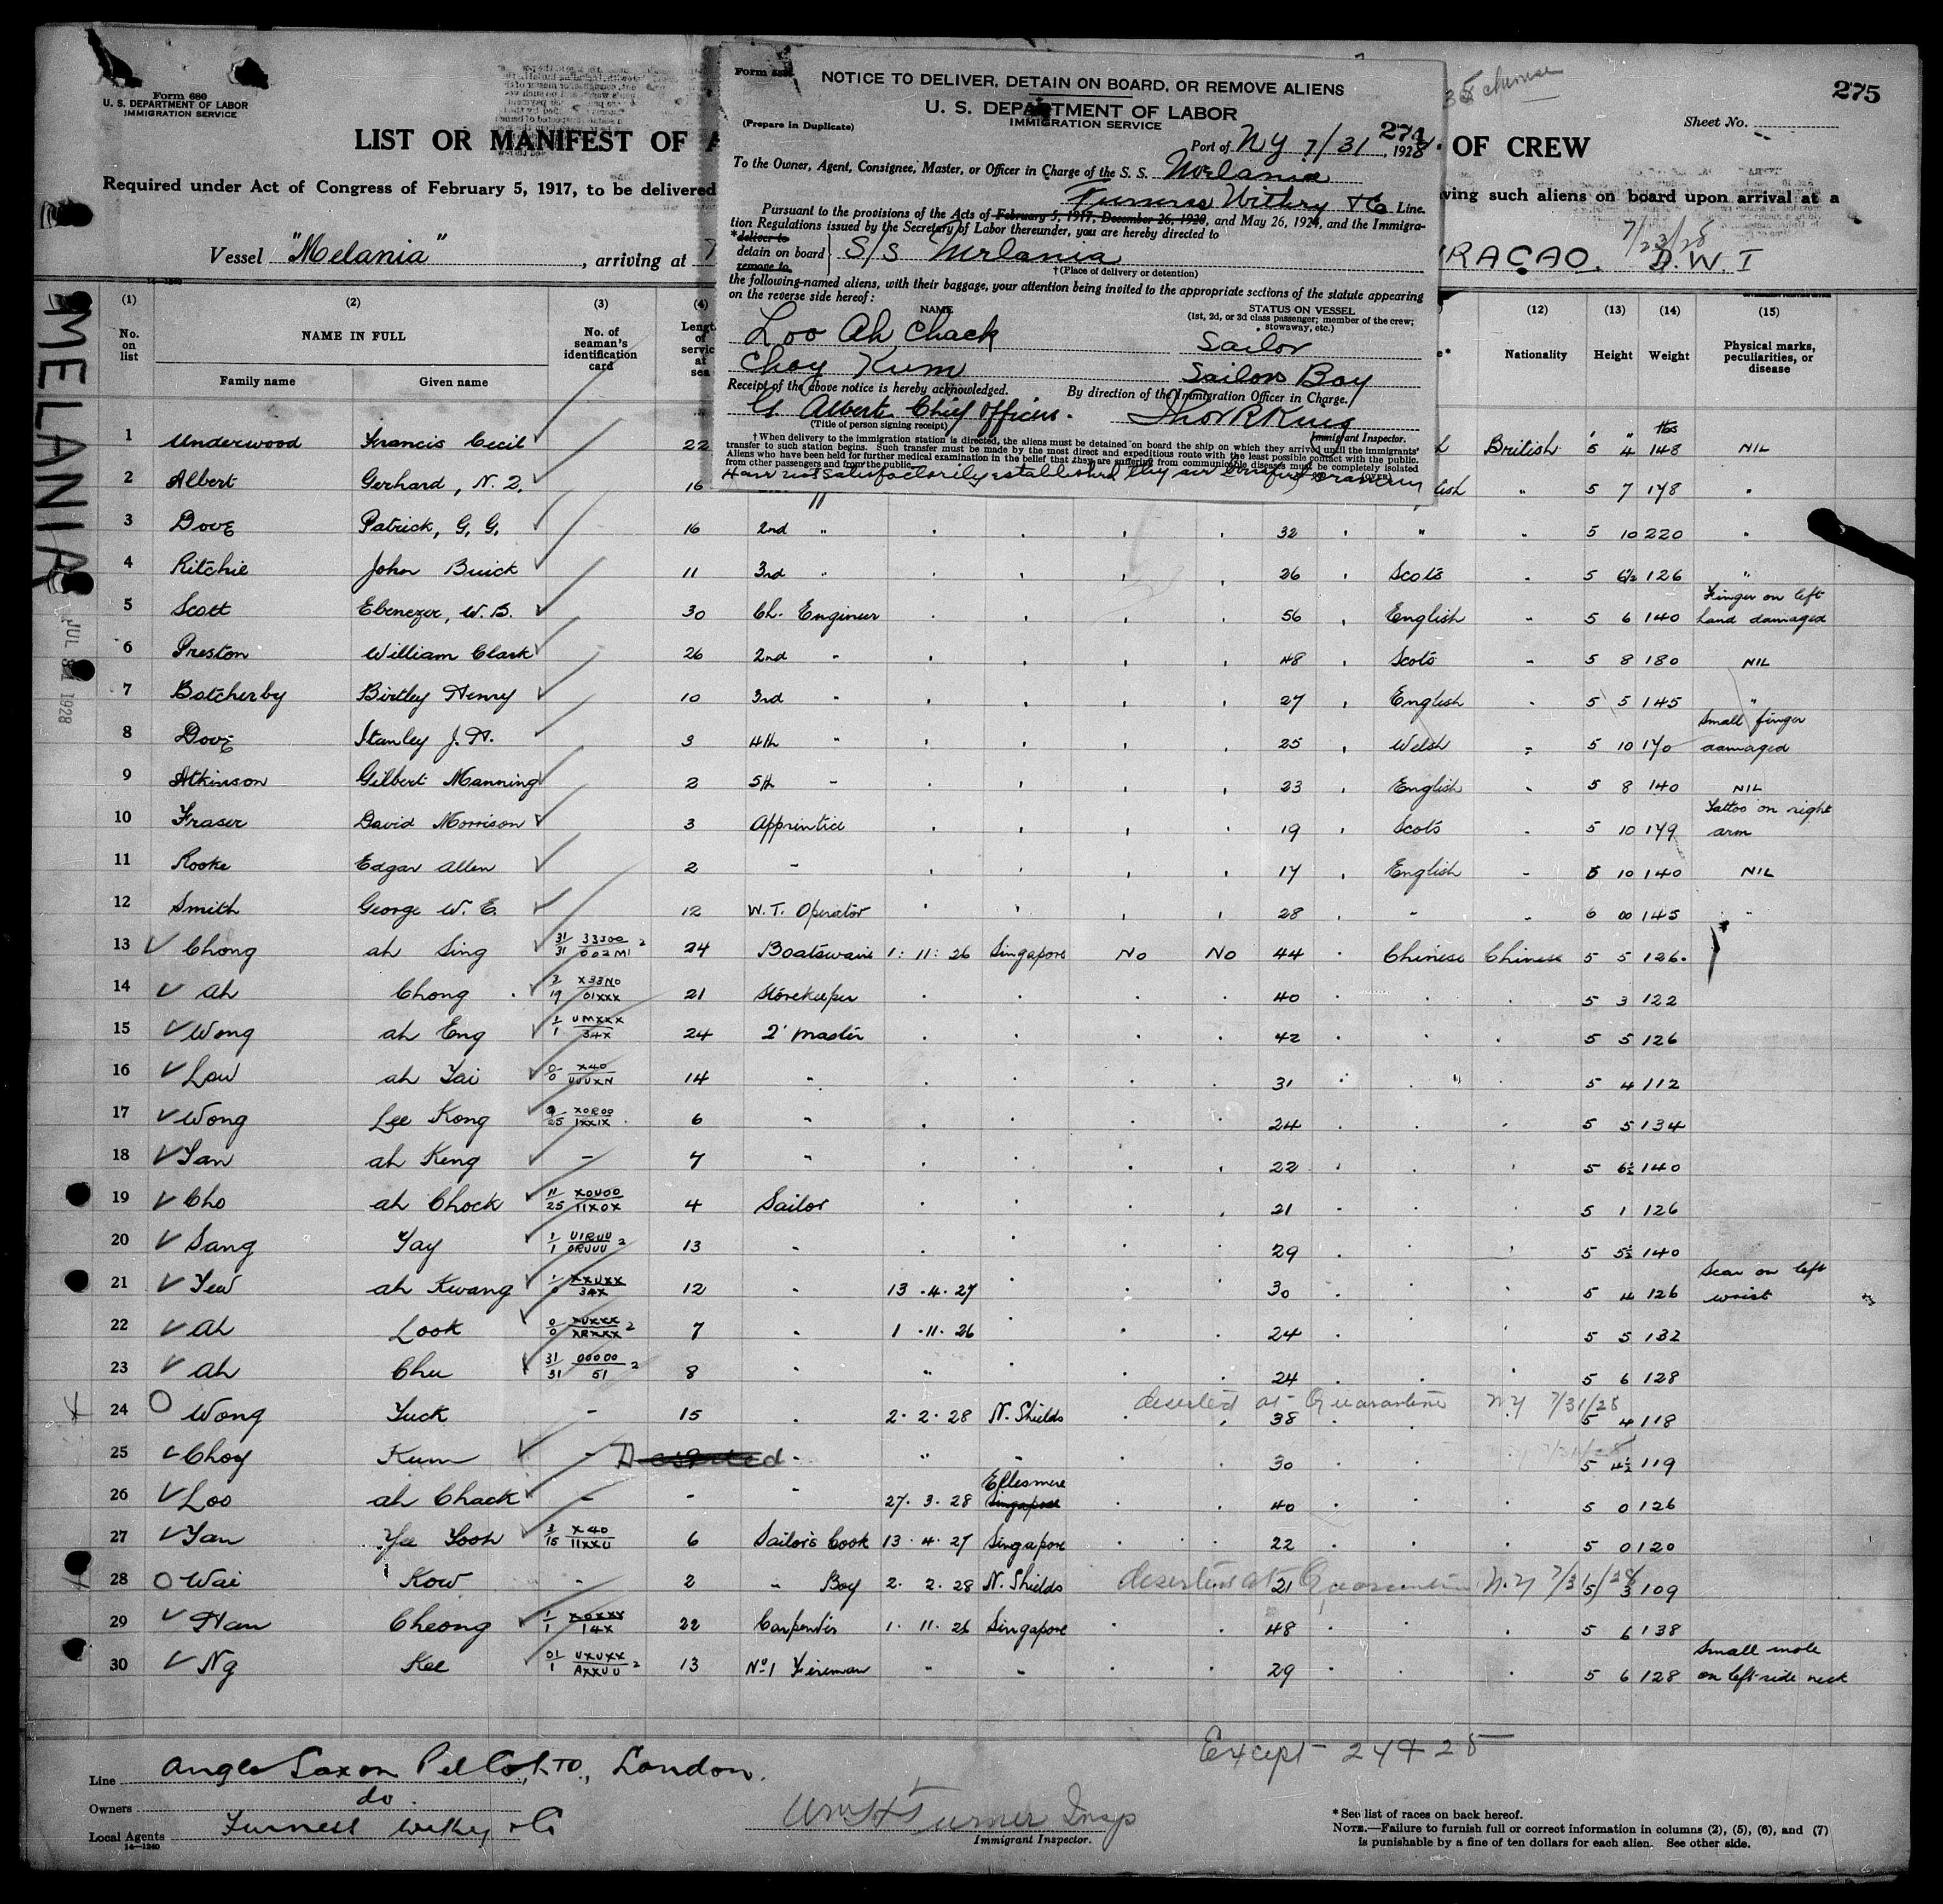 Form 680
U. S. DEPARTMENT OF LABOR
IMMIGRATION SERVICE
275
Sheet No.
LIST OR MANIFEST OF A
OF CREW
Required under Act of Congress of February 5, 1917, to be delivered
ving such aliens on board upon arrival at a
Vessel "Melania", arriving at
RACAO. D.W.I
7/23/28
MELANIA
1928
Form
NOTICE TO DELIVER, DETAIN ON BOARD, OR REMOVE ALIENS
U. S. DEPARTMENT OF LABOR
IMMIGRATION SERVICE
(Prepare in Duplicate)
274
Port of NY 7/31, 1928.
To the Owner, Agent, Consignee, Master, or Officer in Charge of the S. S. Melania
Furness Withey & Co Line.
Pursuant to the provisions of the Acts of February 5, 1917, December 26, 1920, and May 26, 1924, and the Immigra-
tion Regulations issued by the Secretary of Labor thereunder, you are hereby directed to
*deliver to
detain on board S/S Melania
remove to
†(Place of delivery or detention)
the following-named aliens, with their baggage, your attention being invited to the appropriate sections of the statute appearing
on the reverse side hereof:
NAME STATUS ON VESSEL
(1st, 2d, or 3d class passenger; member of the crew;
stowaway, etc.)
Loo Ah Chack Sailor
Choy Kum Sailors Boy
Receipt of the above notice is hereby acknowledged. By direction of the Immigration Officer in Charge.
G Albert Chief Officer.
(Title of person signing receipt) Immigrant Inspector.
†When delivery to the immigration station is directed, the aliens must be detained on board the ship on which they arrived until the immigrants'
transfer to such station begins. Such transfer must be made by the most direct and expeditious route with the least possible contact with the public.
Aliens who have been held for further medical examination in the belief that they are suffering from communicable diseases must be completely isolated
from other passengers and from the public.
Have not satisfactorily established they are bonafide seamen
(1) (2) (3) (4) (12) (13) (14) (15)
No. on list NAME IN FULL No. of seaman's identification card Nationality Height Weight Physical marks, peculiarities, or disease
Family name Given name
1 Underwood Francis Cecil 22 British 5 4 148 NIL
2 Albert Gerhard, N. Z. 16 " 5 7 178 "
3 Dove Patrick, G. G. 16 2nd " 32 " " 5 10 220 "
4 Ritchie John Buick 11 3rd " 26 Scots " 5 6½ 126 "
5 Scott Ebenezer, W. B. 30 Ch. Engineer 56 English " 5 6 140 Finger on left hand damaged
6 Preston William Clark 26 2nd " 48 Scots " 5 8 180 NIL
7 Botcherby Birtley Henry 10 3rd " 27 English " 5 5 145 "
8 Dove Stanley J. H. 3 4th " 25 Welsh " 5 10 170 Small finger damaged
9 Atkinson Gilbert Manning 2 5th " 23 English " 5 8 140 NIL
10 Fraser David Morrison 3 Apprentice 19 Scots " 5 10 179 Tattoo on right arm
11 Rooke Edgar Allen 2 " 17 English " 5 10 140 NIL
12 Smith George W. E. 12 W. T. Operator 28 " " 6 00 145 "
13 Chong ah Sing 24 Boatswain 1: 11: 26 Singapore No No 44 Chinese Chinese 5 5 126
14 Ah Chong 21 Storekeeper 40 5 3 122
15 Wong ah Eng 24 2' Master 42 5 5 126
16 Law ah Tai 14 " 31 5 4 112
17 Wong Lee Kong 6 " 24 5 5 134
18 Tan ah Keng - 7 " 22 5 6½ 140
19 Cho ah Chock 4 Sailor 21 5 1 126
20 Sang Tay 13 " 29 5 5½ 140
21 Yew ah Kwang 12 " 13.4.27 30 5 4 126 Scar on left wrist
22 Ah Look 7 " 1.11.26 24 5 5 132
23 Ah Chu 8 " " 24 5 6 128
24 Wong Tuck - 15 2.2.28 N. Shields deserted at Quarantine N.Y 7/31/28 38 5 4 118
25 Choy Kum - Deserted " 30 5 4½ 119
26 Loo ah Chack - - " 27.3.28 Ellesmere Singapore 40 5 0 126
27 Tan Yee Tooh 6 Sailor's Cook 13.4.27 Singapore 22 5 0 120
28 Wai Kow - 2 " Boy 2.2.28 N. Shields deserted at Quarantine N.Y 7/31/28 21 5 3 109
29 Han Cheong 22 Carpenter 1.11.26 Singapore 48 5 6 138
30 Ng Kee 13 No1 Fireman " " 29 5 6 128 Small mole on left side neck
Except 24 & 28
Line Anglo Saxon Pet Co LTD., London.
Owners do.
Local Agents Furness Withey & Co
14—1240
Wm H Turner Insp
Immigrant Inspector.
*See list of races on back hereof.
NOTE.—Failure to furnish full or correct information in columns (2), (5), (6), and (7)
is punishable by a fine of ten dollars for each alien. See other side.